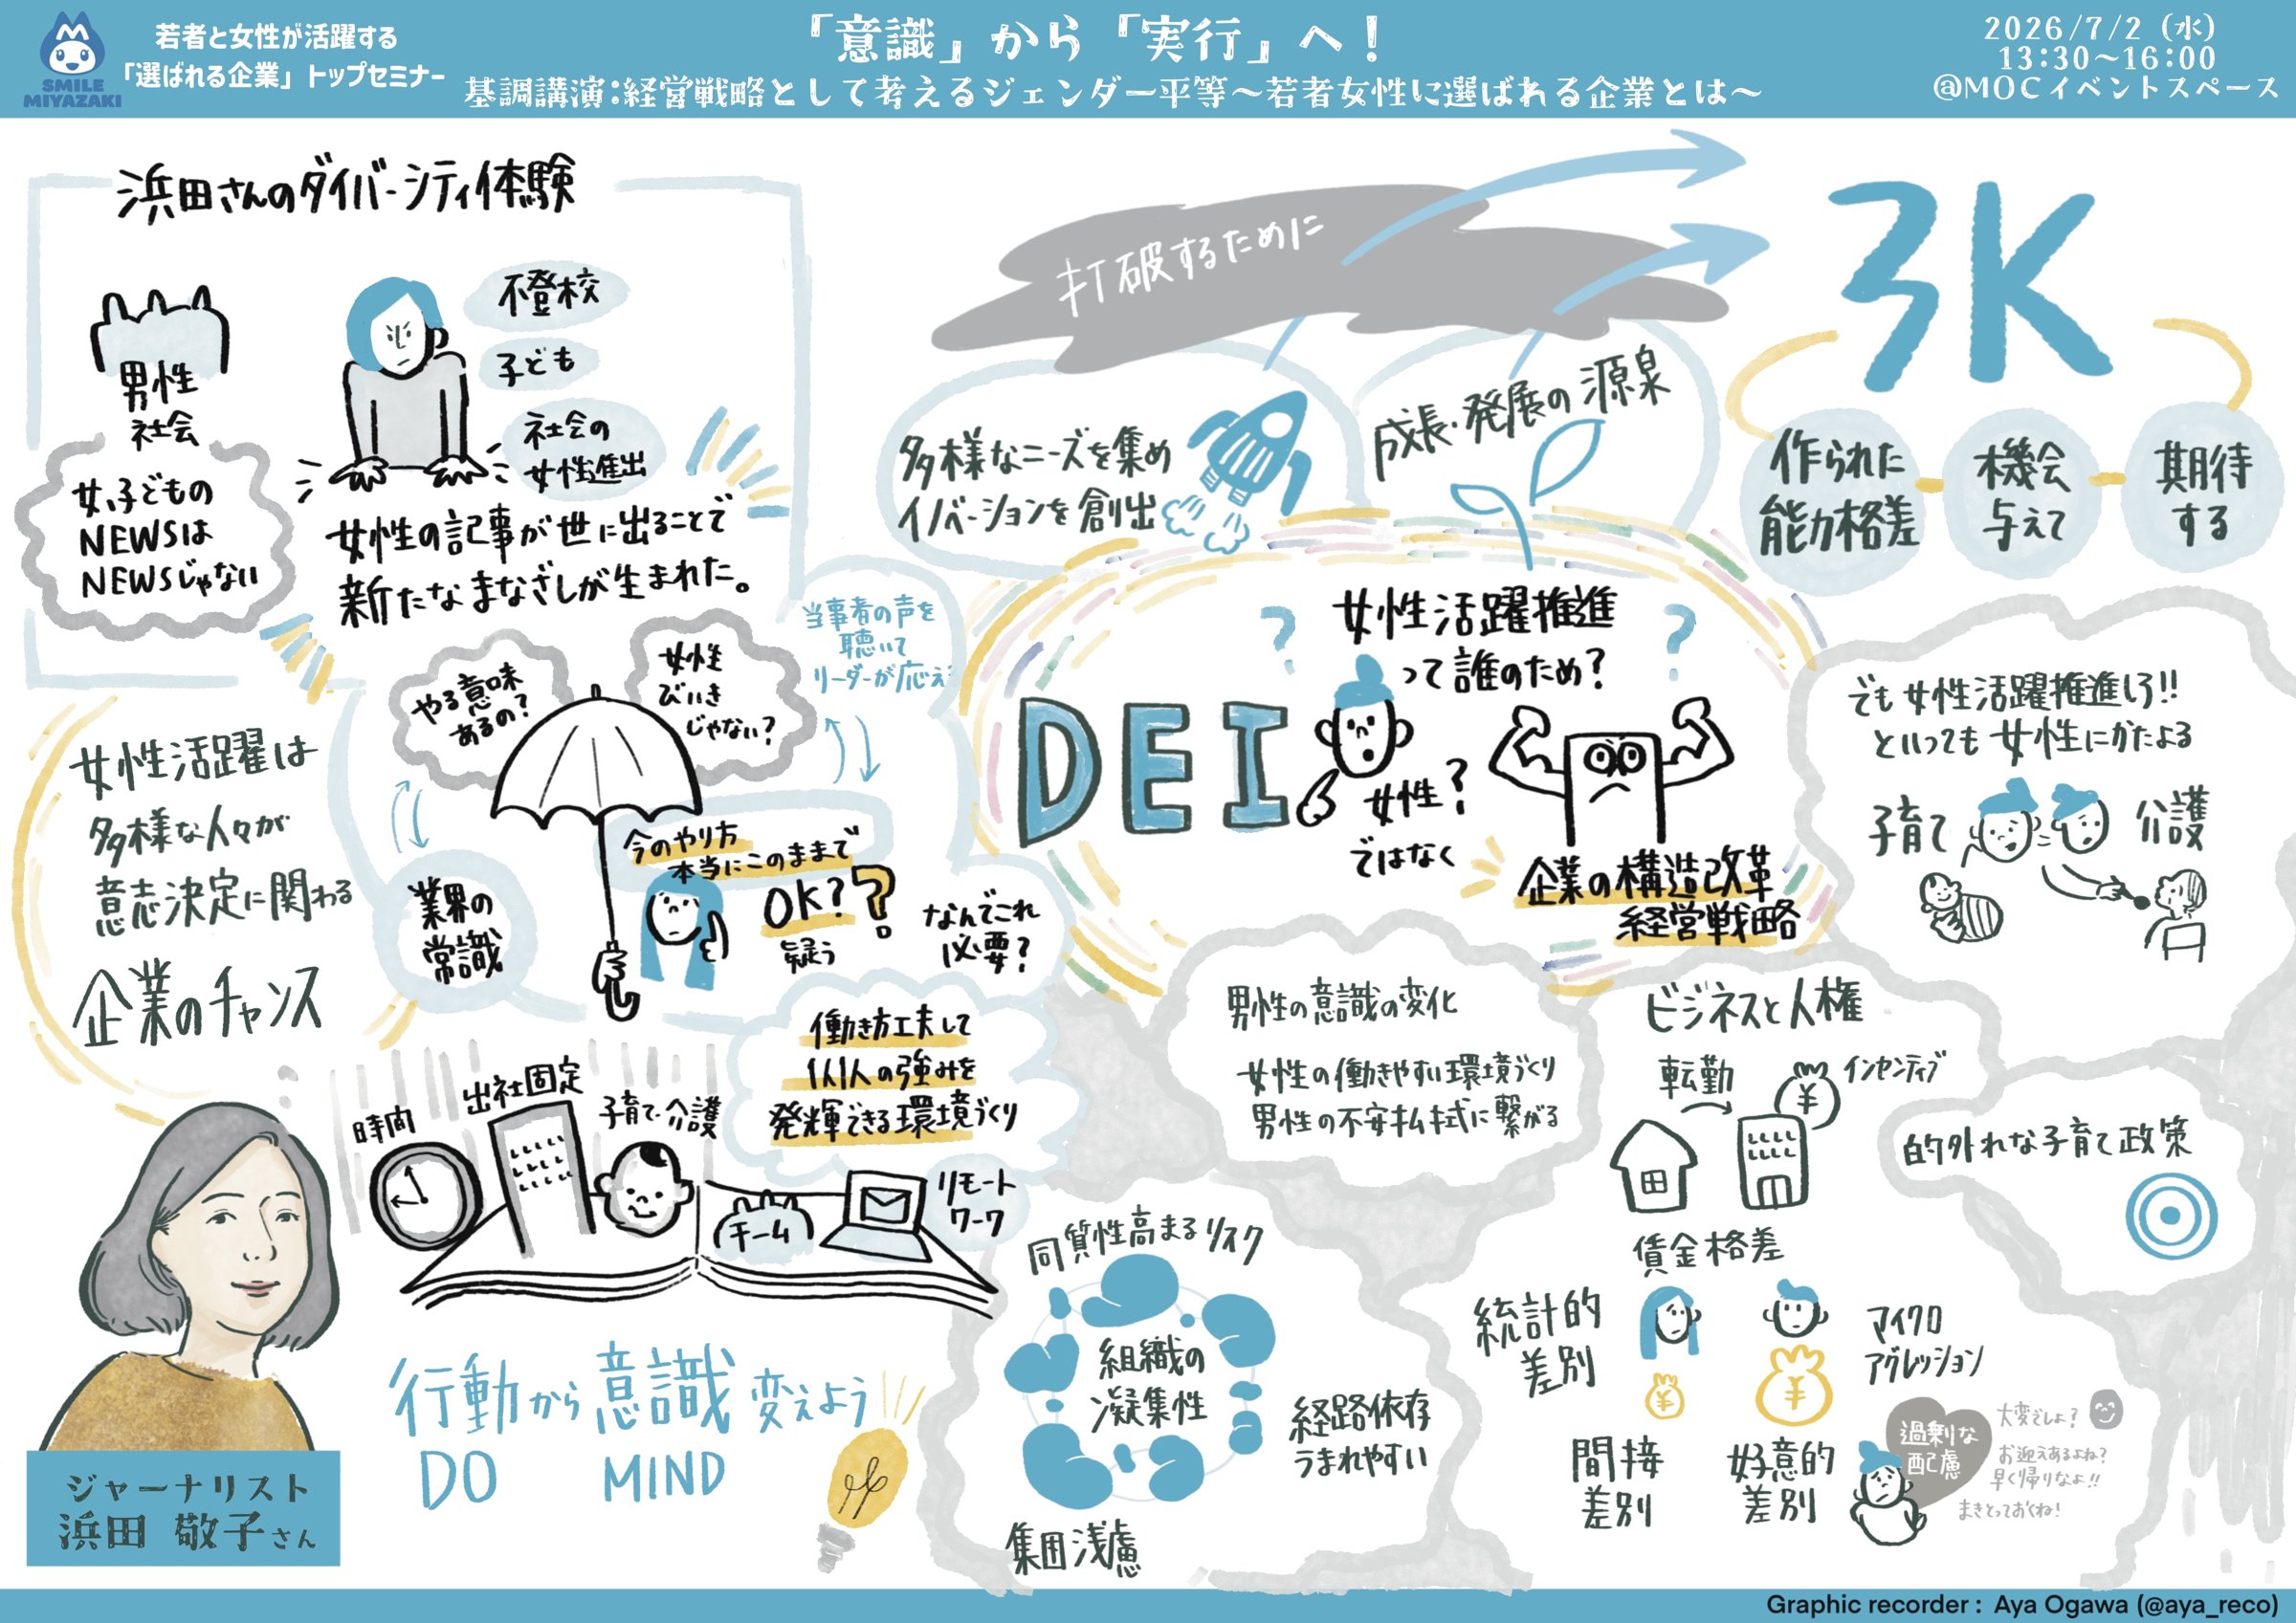 SMILE
MIYAZAKI
若者と女性が活躍する
「選ばれる企業」トップセミナー
「意識」から「実行」へ!
基調講演:経営戦略として考えるジェンダー平等〜若者女性に選ばれる企業とは〜
2026/7/2(水)
13:30〜16:00
@MOCイベントスペース
浜田さんのダイバーシティ体験
男性
社会
女、子どもの
NEWSは
NEWSじゃない
不登校
子ども
社会の
女性進出
女性の記事が世に出ることで
新たなまなざしが生まれた。
女性活躍は
多様な人々が
意志決定に関わる
企業のチャンス
やる意味
あるの?
女性
びいき
じゃない?
当事者の声を
聴いて
リーダーが応え
業界の
常識
今のやり方
本当にこのままで
OK??
疑う
なんでこれ
必要?
働き方工夫して
個人の強みを
発揮できる環境づくり
時間
出社固定
子育て・介護
チーム
リモート
ワーク
行動から意識変えよう
DO MIND
ジャーナリスト
浜田 敬子さん
打破するために
3K
作られた
能力格差
機会
与えて
期待
する
多様なニーズを集め
イノベーションを創出
成長・発展の源泉
DEI
女性活躍推進
って誰のため?
? ?
女性?
ではなく
企業の構造改革
経営戦略
でも女性活躍推進しろ!!
といっても女性にかたよる
子育て
介護
男性の意識の変化
女性の働きやすい環境づくり
男性の不安払拭に繋がる
ビジネスと人権
転勤
インセンティブ
¥
賃金格差
的外れな子育て政策
統計的
差別
¥
¥
マイクロ
アグレッション
間接
差別
好意的
差別
過剰な
配慮
大変でしょ?
お迎えあるよね?
早く帰りなよ!!
まきとっておくね!
同質性高まるリスク
組織の
凝集性
経路依存
うまれやすい
集団浅慮
Graphic recorder : Aya Ogawa (@aya_reco)